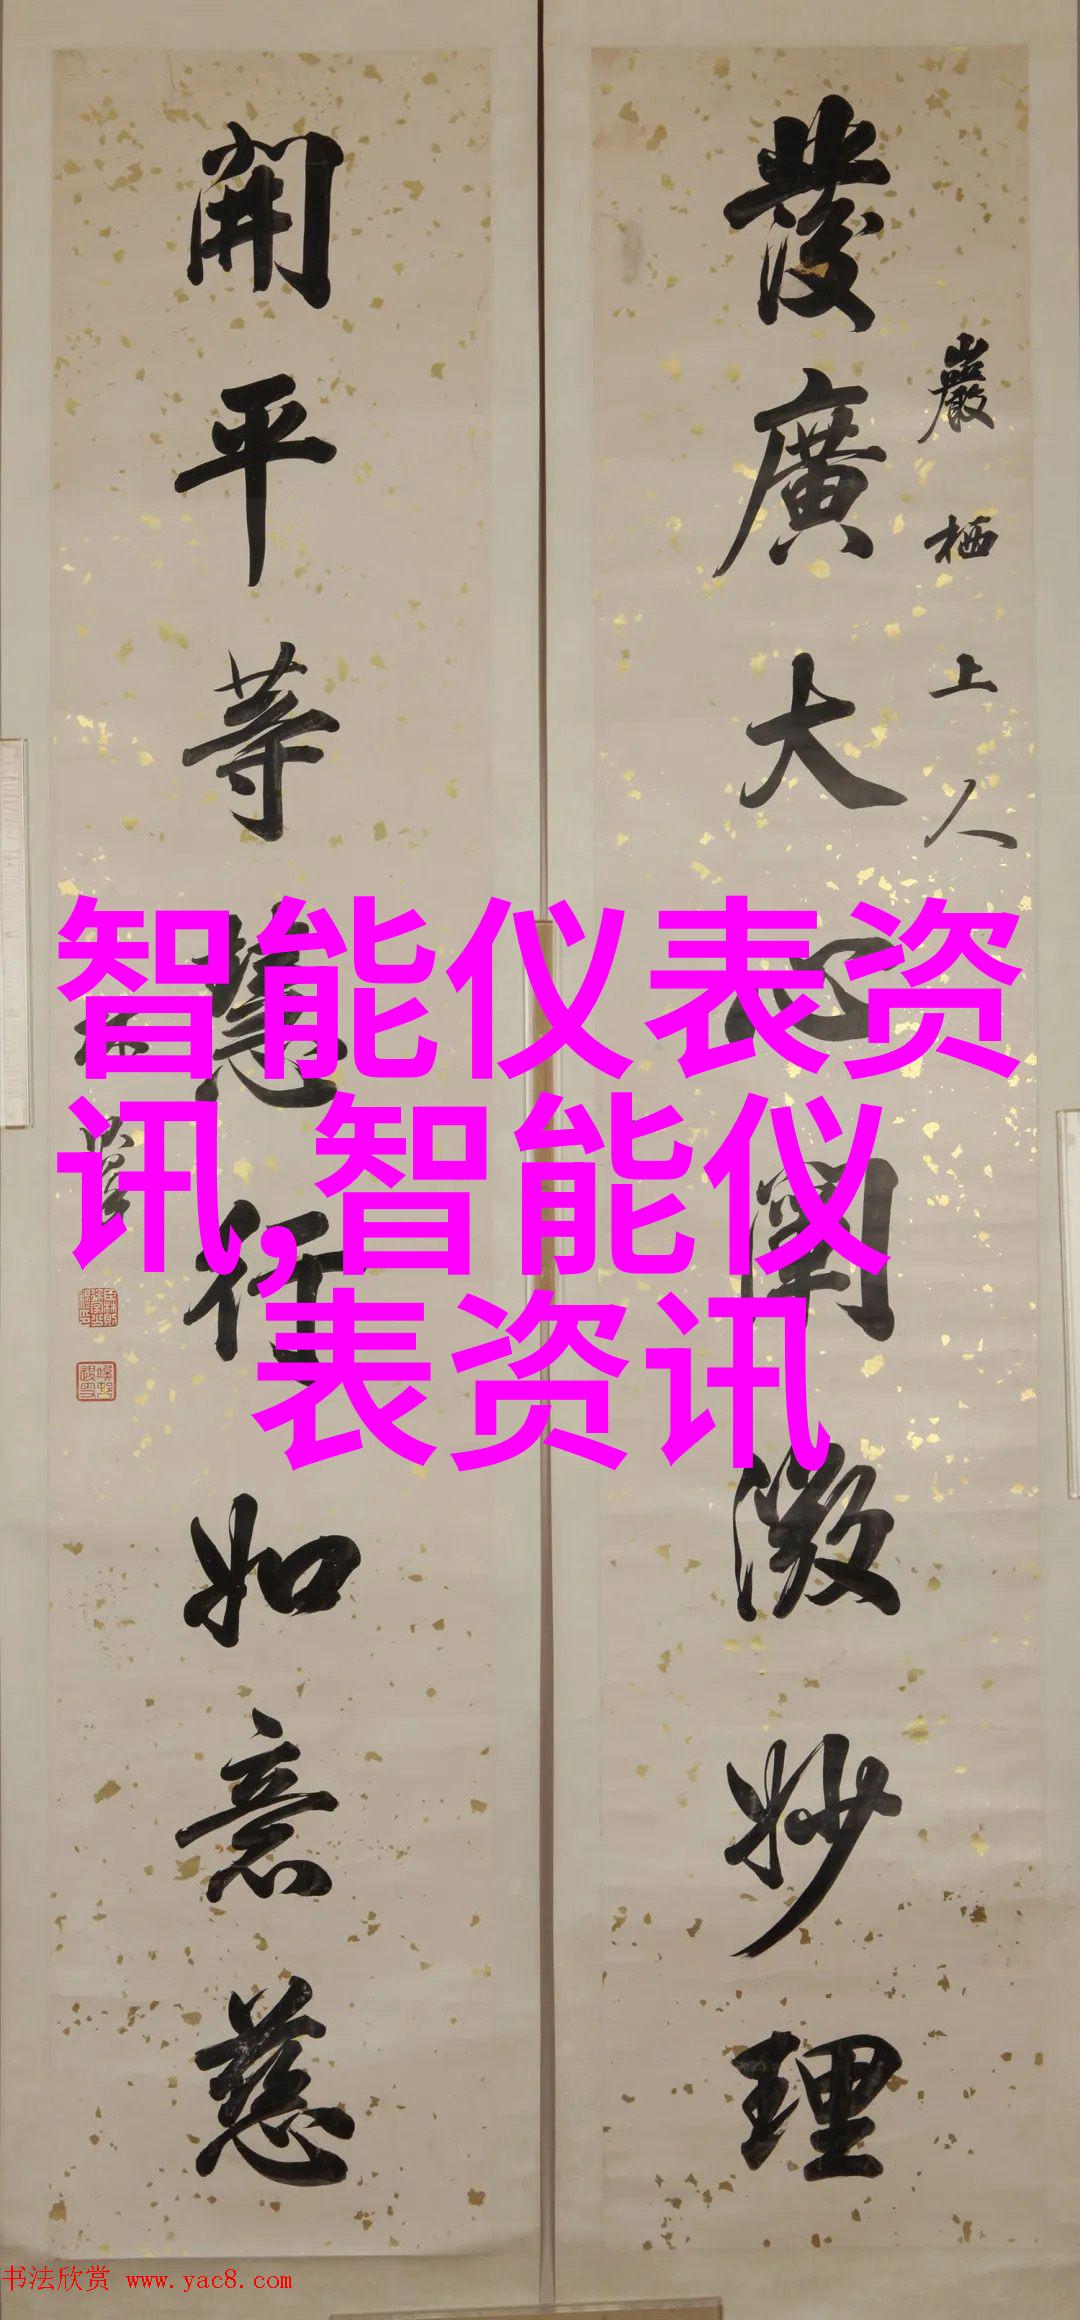 發廣大心闡微妙理
巖栖上人
開平等慧行如意慈
智能仪表资
讯,智能仪
表资讯
书法欣赏 www.yac8.com